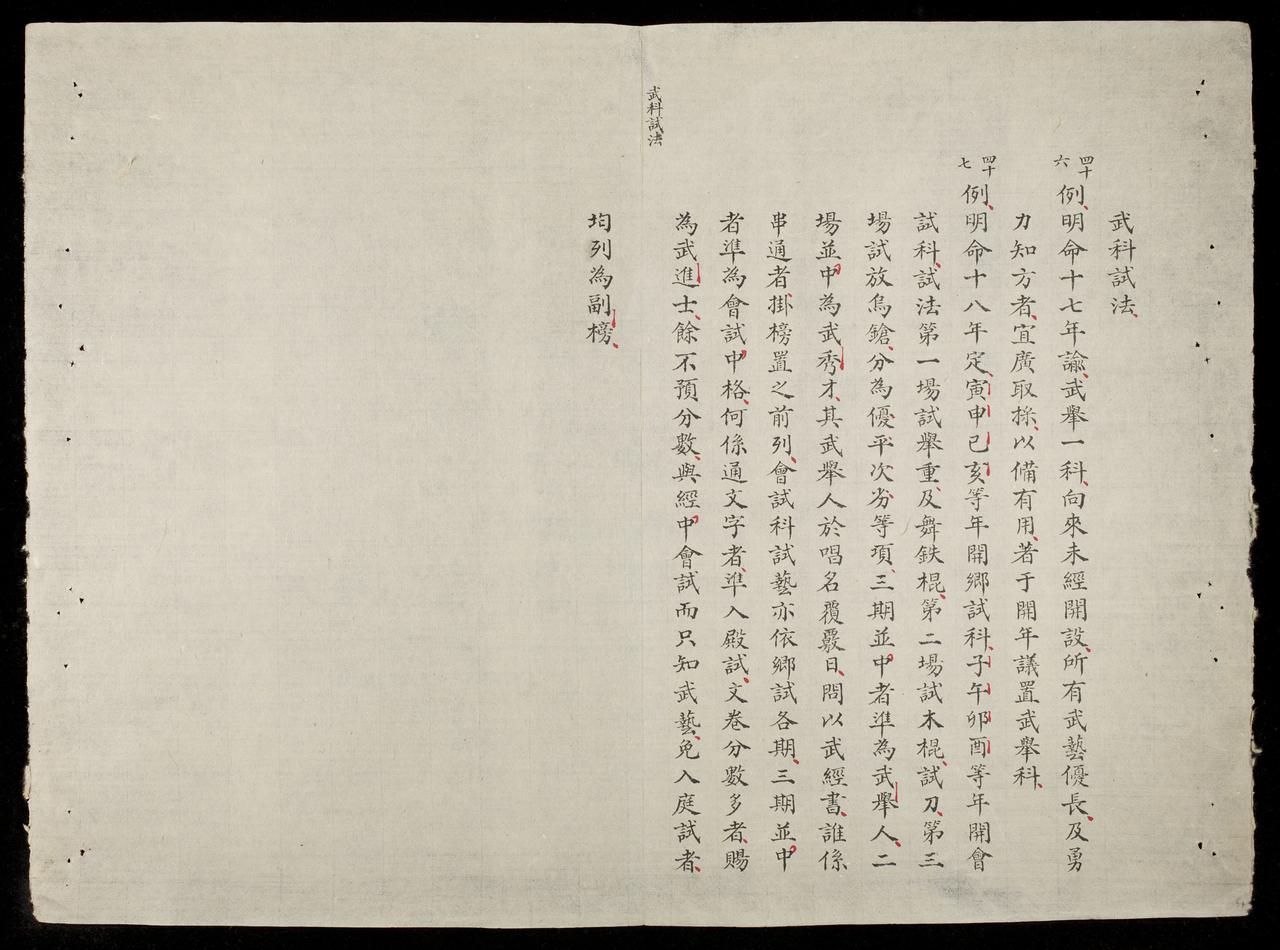 武科試法
四十六
例明命十七年諭武舉一科向來未經開設所有武藝優長及勇
力知方者宜廣取採以備有用著于開年議置武舉科
四十七
例明命十八年定寅申巳亥等年開鄉試科子午卯酉等年開會
試科試法第一場試舉重及舞鉄棍第二場試木棍試刀第三
場試放鳥鎗分為優平次劣等項三期並中者準為武舉人二
場並中為武秀才其武舉人於唱名覆覈日問以武經書誰係
串通者掛榜置之前列會試科試藝亦依鄉試各期三期並中
者準為會試中格何係通文字者準入殿試文卷分數多者賜
為武進士餘不預分數與經中會試而只知武藝免入庭試者
武科試法
均列為副榜